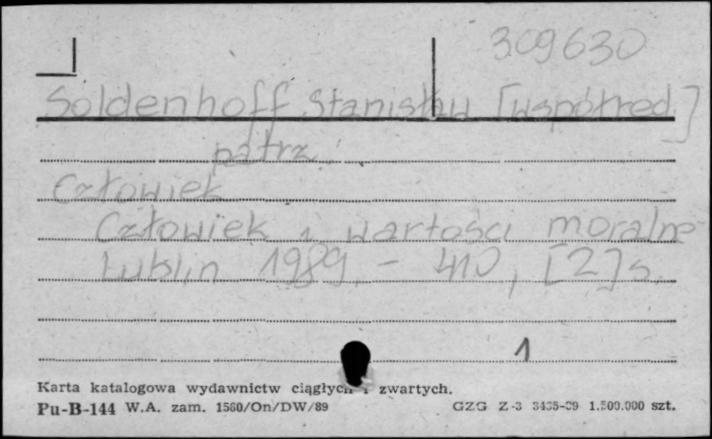 309630
Soldenhoff Stanisław [współred.]
patrz:
Człowiek
Człowiek i wartości moralne
Lublin 1989. - 410, [2] s.
1
Karta katalogowa wydawnictw ciągłych i zwartych.
Pu-B-144 W.A. zam. 1560/On/DW/89 GZG Z-3 3435-89 1.500.000 szt.